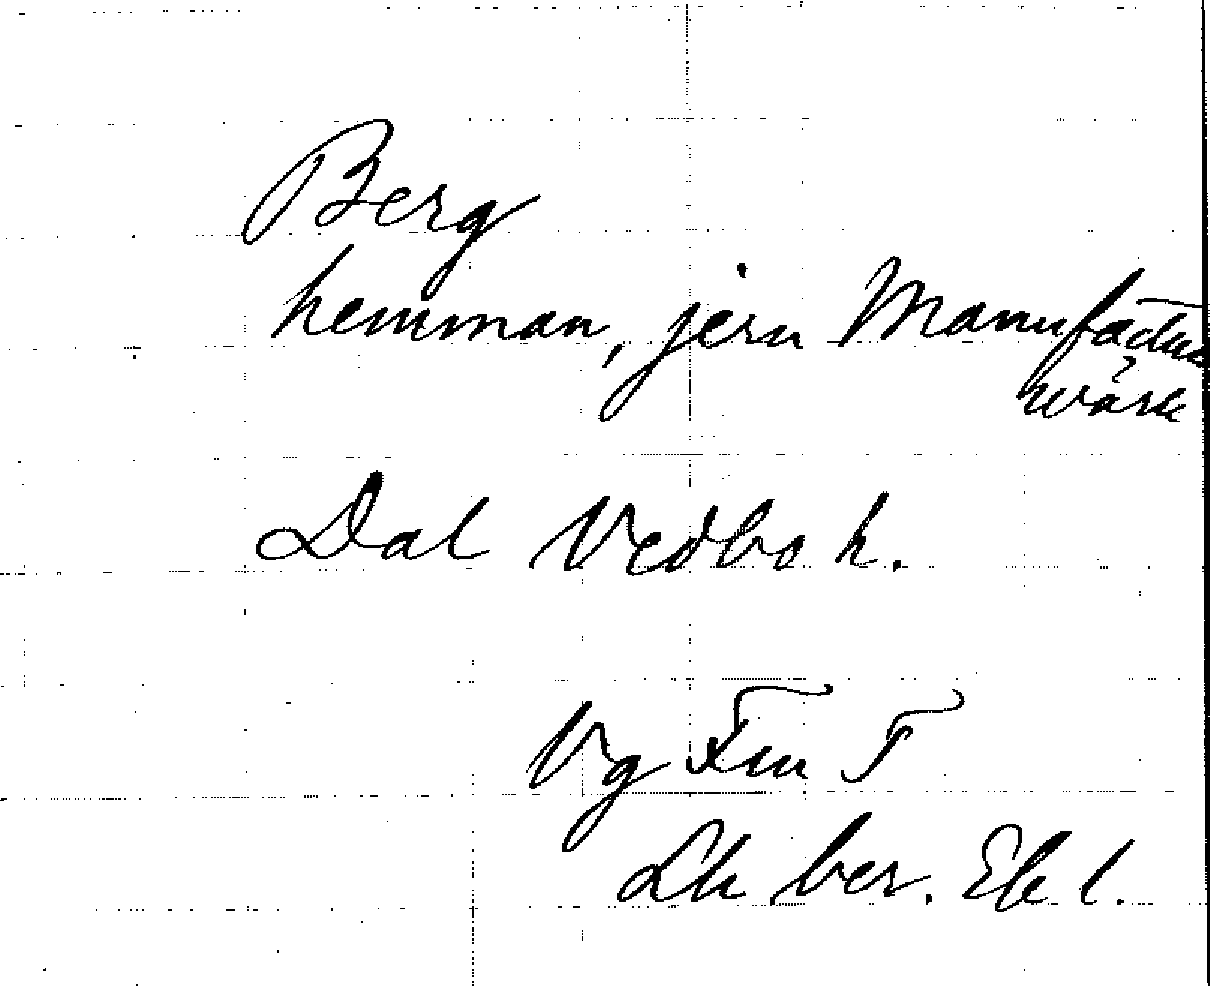 Berg
hemman, jern Manufactur
wärk
Dal Vedbo h.
Vg Fm T
Lh ber. Ek l.